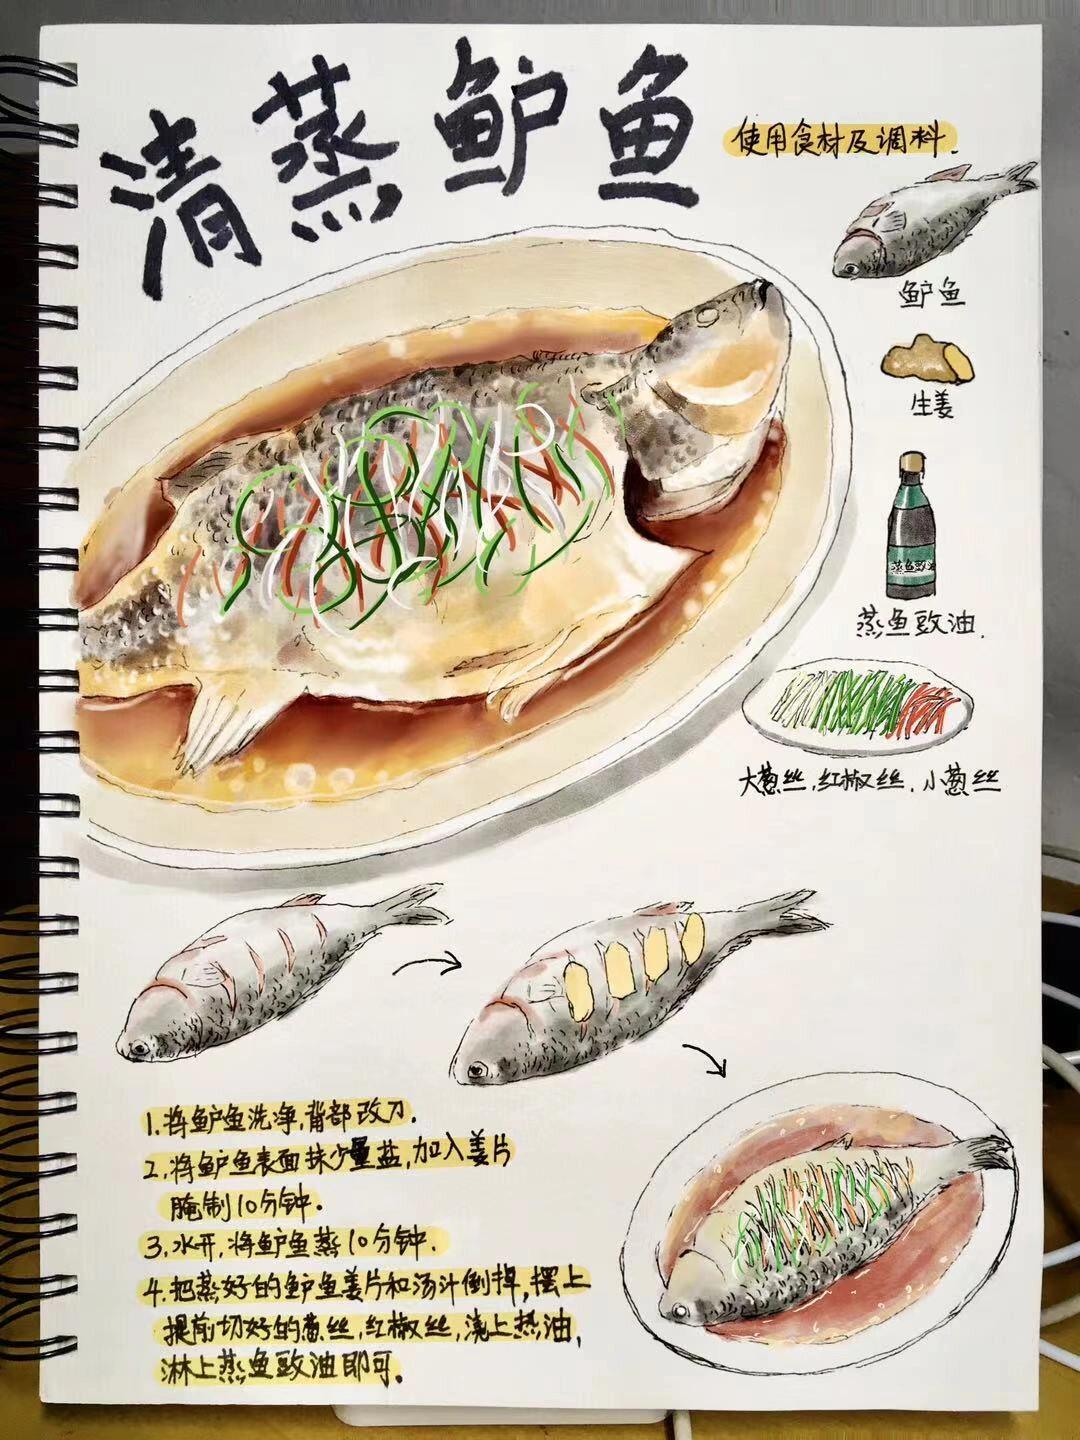 清蒸鲈鱼
使用食材及调料.
鲈鱼
生姜
蒸鱼豉油
蒸鱼豉油.
大葱丝,红椒丝,小葱丝
1.将鲈鱼洗净,背部改刀.
2.将鲈鱼表面抹少量盐,加入姜片
腌制10分钟.
3.水开,将鲈鱼蒸10分钟.
4.把蒸好的鲈鱼姜片和汤汁倒掉,摆上
提前切好的葱丝,红椒丝,浇上热油,
淋上蒸鱼豉油即可.